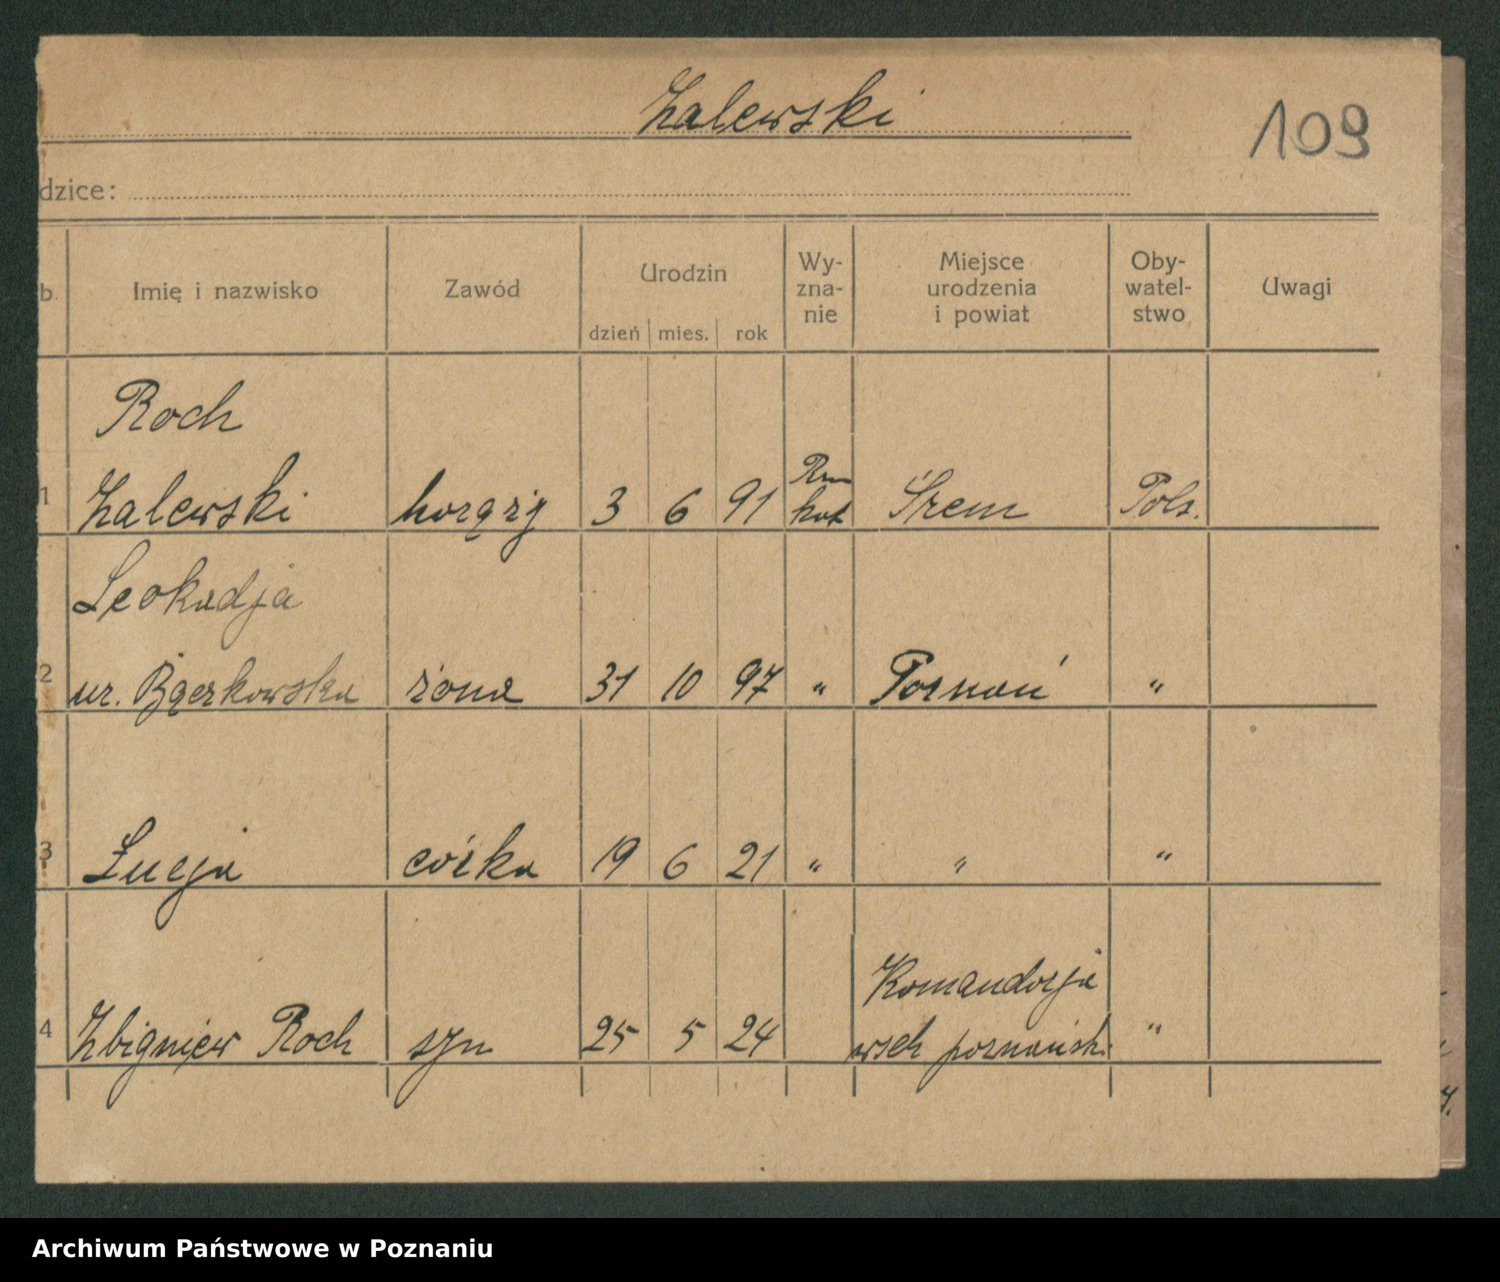 Zalewski
109
dzice:
b. Imię i nazwisko Zawód Urodzin dzień mies. rok Wy-zna-nie Miejsce urodzenia i powiat Oby-watel-stwo Uwagi
Roch
1 Zalewski horąży 3 6 91 Rm kat Śrem Pols.
Leokadja
2 ur. Bączkowska żona 31 10 97 " Poznań "
3 Łucja córka 19 6 21 " " "
Komandorja
4 Zbigniew Roch syn 25 5 24 wsch poznańsk. "
Archiwum Państwowe w Poznaniu